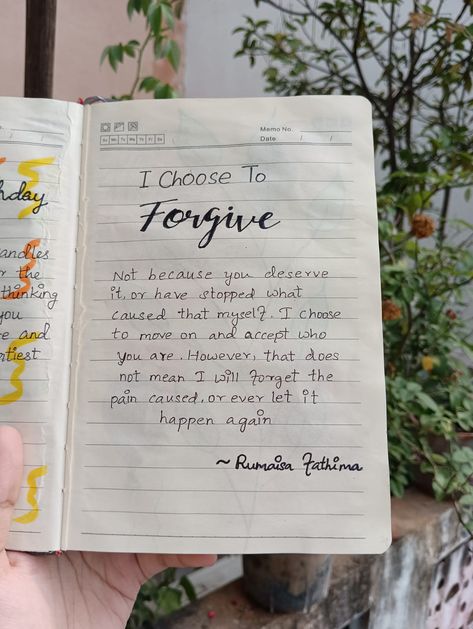 Memo No.
Date / /
Su Mo Tu We Th Fr Sa
I Choose To
Forgive
Not because you deserve
it, or have stopped what
caused that myself. I choose
to move on and accept who
you are. However, that does
not mean I will forget the
pain caused, or ever let it
happen again
~ Rumaisa Fathima
hday
andles
r the
thinking
you
e and
rtiest